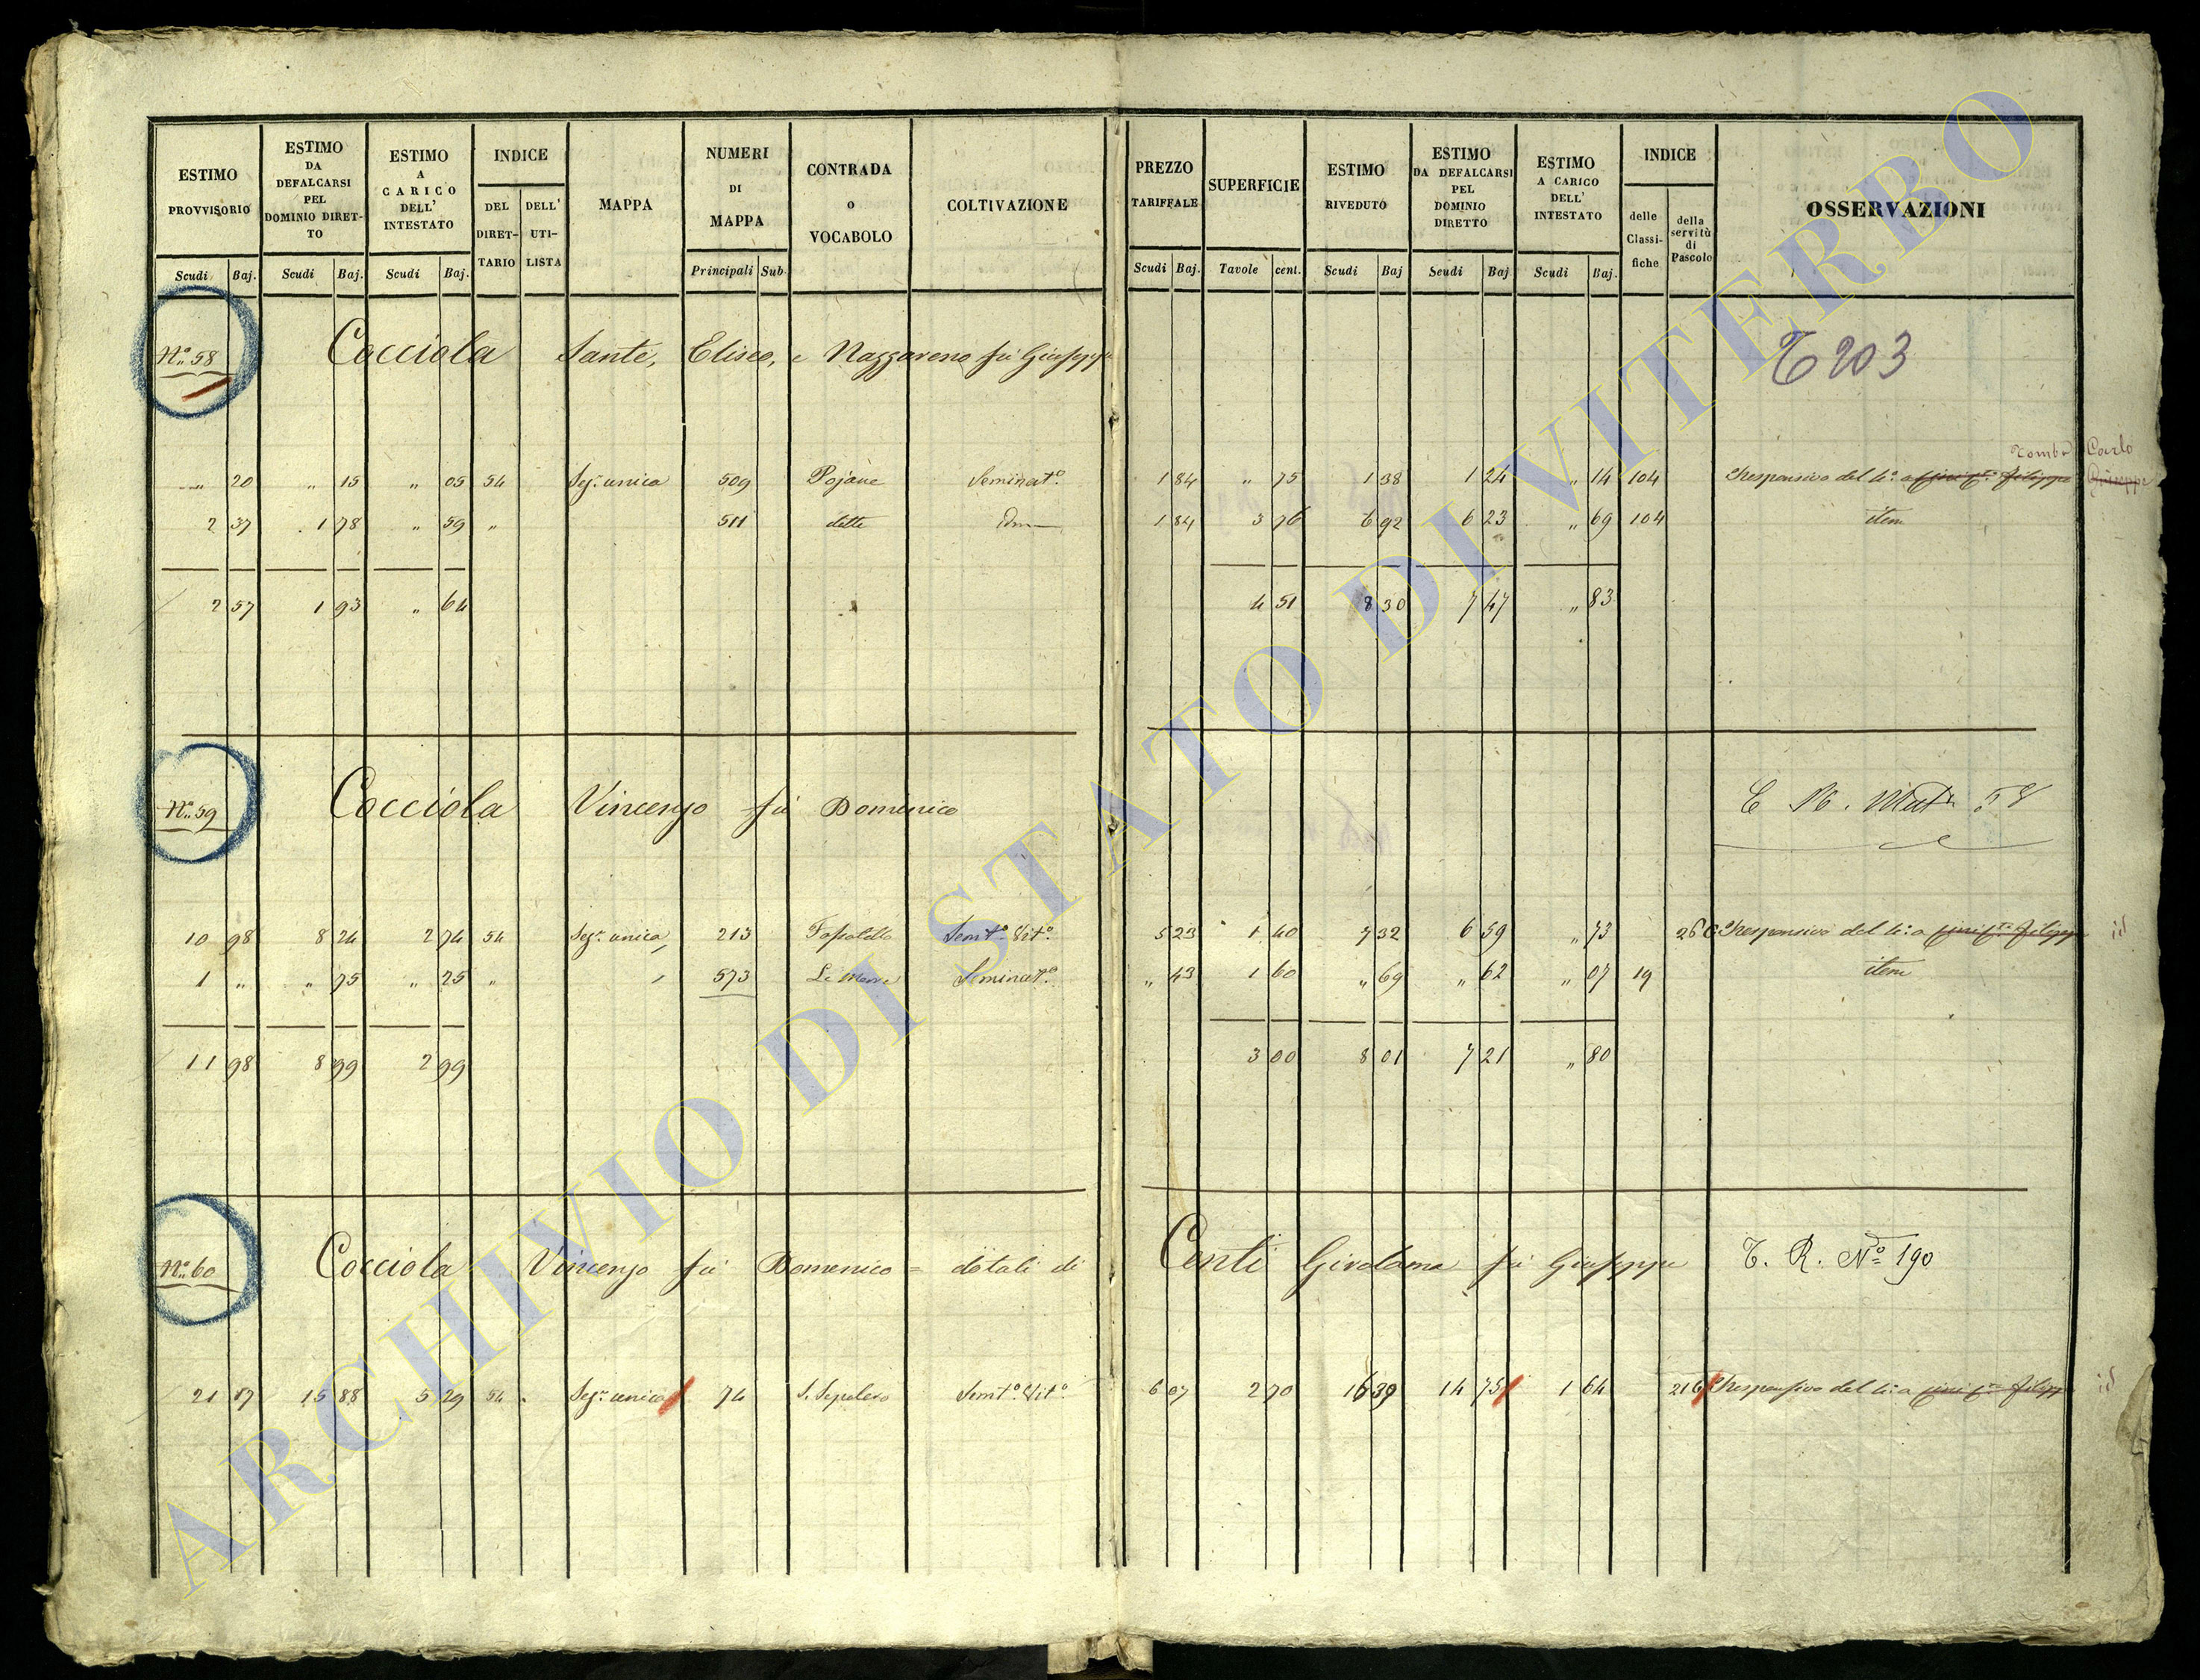 ESTIMO PROVVISORIO Scudi Baj.
ESTIMO DA DEFALCARSI PEL DOMINIO DIRETTO Scudi Baj.
ESTIMO A CARICO DELL' INTESTATO Scudi Baj.
INDICE DEL DIRETTARIO DELL' UTILISTA
MAPPA
NUMERI DI MAPPA Principali Sub
CONTRADA o VOCABOLO
COLTIVAZIONE
PREZZO TARIFFALE Scudi Baj.
SUPERFICIE Tavole cent.
ESTIMO RIVEDUTO Scudi Baj
ESTIMO DA DEFALCARSI PEL DOMINIO DIRETTO Scudi Baj
ESTIMO A CARICO DELL' INTESTATO Scudi Baj.
INDICE delle Classifiche della servitù di Pascolo
OSSERVAZIONI
N.º 58 Cocciola Sante, Eliseo, e Nazzareno fu Giuseppe
T 203
Carlo
" 20 " 15 " 05 54 Sez.e unica 509 Pojane Seminat.º 1 84 " 75 1 38 1 24 " 14 104 Responsivo del 4.º a
2 37 1 78 " 59 " 511 dette 1 84 3 76 6 92 6 23 " 69 104 item
2 57 1 93 " 64 4 51 8 30 7 47 " 83
N.º 59 Cocciola Vincenzo fu Domenico
58
10 98 8 24 2 74 54 Sez.e unica 213 Semt.º Vit.º 5 23 1 40 7 32 6 59 " 73 Responsivo del 4.º a id
1 " " 75 " 25 " 573 Seminat.º " 43 1 60 " 69 " 62 " 07 19 item
11 98 8 99 2 99 3 00 8 01 7 21 " 80
N.º 60 Cocciola Vincenzo fu Domenico = dotali di Conti Girolama fu Giuseppe T. R. Nº 190
21 17 15 88 5 29 54 Sez.e unica 74 S. Sepolcro Semt.º Vit.º 6 07 2 70 16 39 14 75 1 64 216 Responsivo del 4.º a id
ARCHIVIO DI STATO DI VITERBO